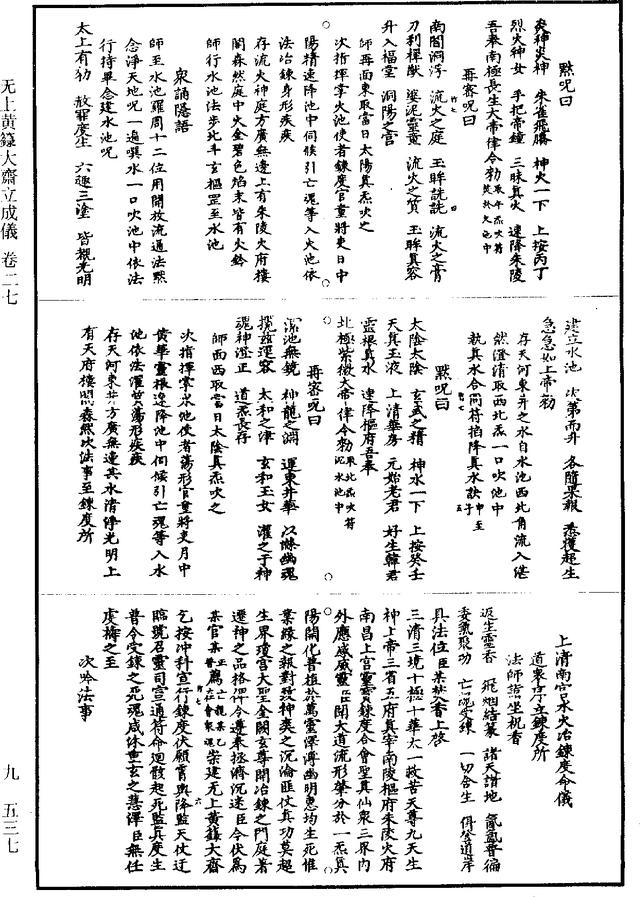 默呪曰
炎神炎神　朱雀飛騰　神火一下　上按丙丁
烈火神女　手把帝鐘　三昧真火　速降朱陵
吾奉南極長生大帝律令勅
再密呪曰
南閻洞浮　流火之庭　玉眸詵詵　流火之膏
刀利禪猷　婆泥靈童　流火之質　玉眸真容
升入福堂　洞陽之宮
師再面東取當日太陽真炁吹之
次指揮掌火池使者鍊度官童將吏日中
陽精速降池中伺候引亡魂等入火池依
法冶鍊身形疾疾
存流火神庭方廣無邊上有朱陵火府樓
閣森然庭中火金碧色焰末皆有火鈴
師行水池法步北斗玄樞罡至水池
衆誦隱語
師至水池羅周十二位用開放流通法默
念淨天地呪一遍噀水一口吹池中依法
行持畢念建水池呪
太上有勅　赦罪度生　六趣三塗　皆覩光明
建立水池　次第而升　各隨果報　悉獲超生
急急如上帝勅
存天河東井之水自水池西北角流入湛
然澄清取西北炁一口吹池中
執真水合同符掐降真水訣
默呪曰
太陰太陰　玄武之精　神水一下　上按癸壬
天真玉液　上清華房　元始老君　好生韓君
靈根真水　速降樞府吾奉
北極紫微大帝律令勅
再密呪曰
深池無鏡　神龍之淵　運東井華　以滌幽魂
攬茲運容　太和之津　玄和玉女　濯之于神
魂神澄正　道炁長存
師面西取當日太陰真炁吹之
次指揮掌水池使者蕩形官童將吏月中
黃華靈根速降池中伺候引亡魂等入水
池依法濯質蕩形疾疾
存天河東井方廣無邊其水清停光明上
有天府樓閣森然次法事至鍊度所
上清南宮水火冶鍊度命儀
道衆序立鍊度所
法師詣坐祝香
返生靈香　飛烟結篆　諸天諸地　氤氳普徧
委氣聚功　亡魂受鍊　一切含生　俱登道岸
具法位臣某拈香上啓
三清三境十極十華太一救苦天尊九天生
神上帝三省五府真宰南陵樞府朱陵火府
南昌上宮靈寶鍊度合會聖真仙衆三界內
外應感威靈臣聞大道流形肇分於一炁真
陽開化普植於萬靈澤溥幽明惠均生死惟
業緣之報對致神爽之沉淪匪仗真功莫超
生界瓊宮大聖金闕玄尊開冶鍊之門庭著
遷神之品格俾令遵奉拯濟沉迷臣今伏為
某官某薦亡魂某乙崇建无上黃籙大齋
乞按冲科宣行鍊度伏願霄輿降監天仗迂
臨號召靈司宣通符命迴骸起死監真度生
普令受鍊之死魂咸休重玄之慧澤臣無任
虔禱之至
次吟法事
无上黃籙大齋立成儀　卷二七
九　五三七